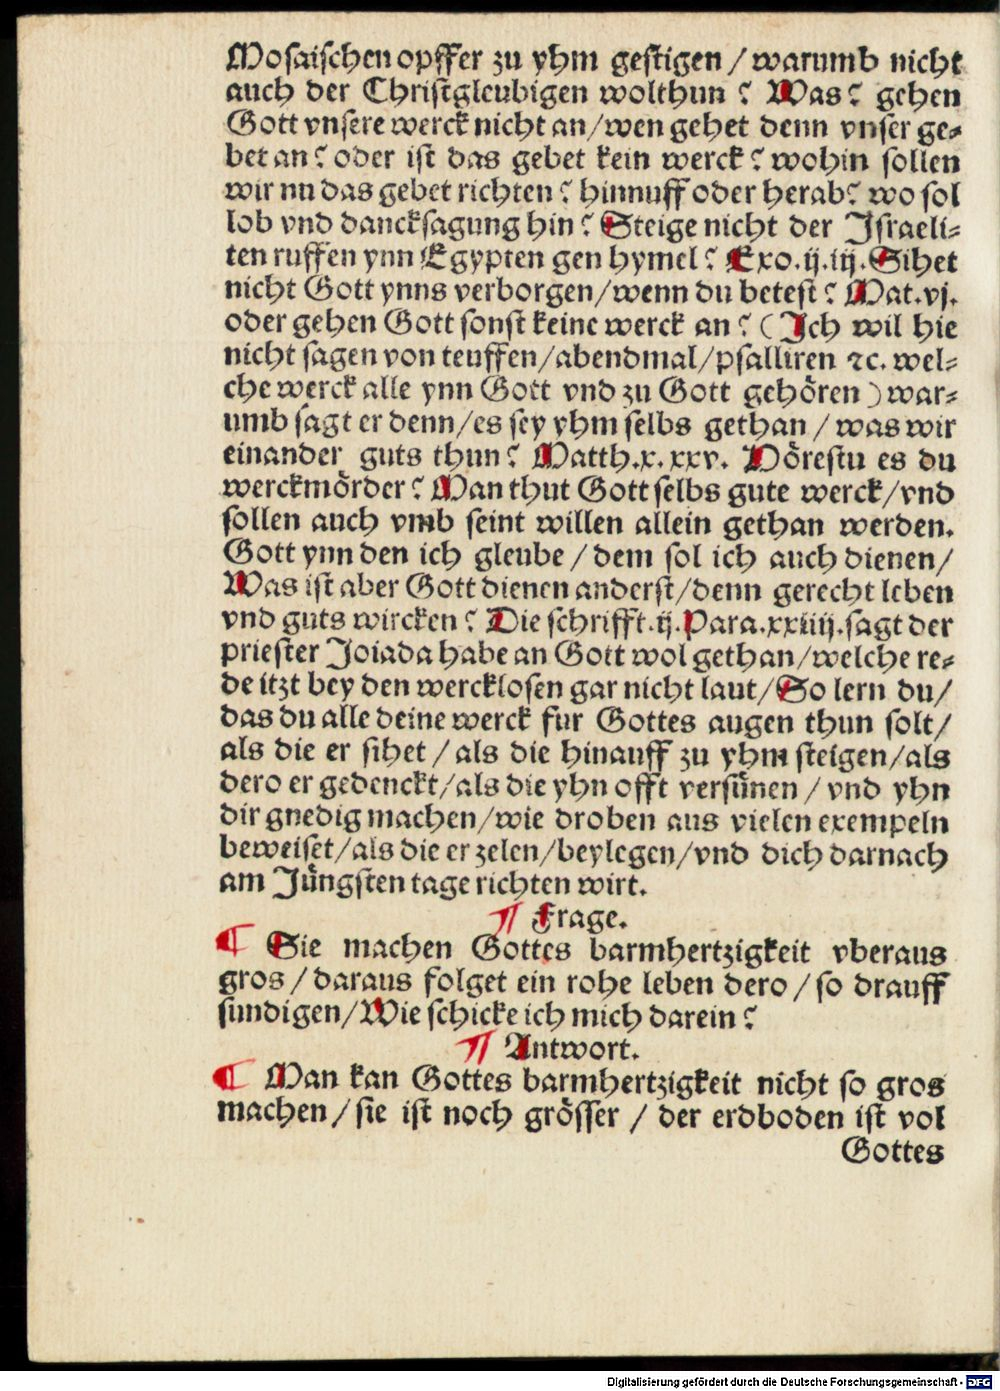 Mosaischen opffer zu yhm gestigen / warumb nicht
auch der Christgleubigen wolthun? Was? gehen
Gott vnsere werck nicht an/wen gehet denn vnser ge⸗
bet an? oder ist das gebet kein werck? wohin sollen
wir nu das gebet richten? hinnuff oder herab? wo sol
lob vnd dancksagung hin? Steige nicht der Israeli⸗
ten ruffen ynn Egypten gen hymel? Exo.ij.iij. Sihet
nicht Gott ynns verborgen/wenn du betest? Mat.vj.
oder gehen Gott sonst keine werck an? (Ich wil hie
nicht sagen von teuffen/abendmal/psalliren ꝛc. wel⸗
che werck alle ynn Gott vnd zu Gott gehören) war⸗
umb sagt er denn/es sey yhm selbs gethan / was wir
einander guts thun? Matth.x.xxv. Hörestu es du
werckmörder? Man thut Gott selbs gute werck/vnd
sollen auch vmb seint willen allein gethan werden.
Gott ynn den ich gleube / dem sol ich auch dienen/
Was ist aber Gott dienen anderst/denn gerecht leben
vnd guts wircken? Die schrifft.ij.Para.xxiiij.sagt der
priester Joiada habe an Gott wol gethan/welche re⸗
de itzt bey den wercklosen gar nicht laut/So lern du/
das du alle deine werck fur Gottes augen thun solt/
als die er sihet / als die hinauff zu yhm steigen/als
dero er gedenckt/als die yhn offt versünen / vnd yhn
dir gnedig machen/wie droben aus vielen exempeln
beweiset/als die er zelen/beylegen/vnd dich darnach
am Jüngsten tage richten wirt.
¶ Frage.
¶ Sie machen Gottes barmhertzigkeit vberaus
gros / daraus folget ein rohe leben dero / so drauff
sundigen/Wie schicke ich mich darein?
¶ Antwort.
¶ Man kan Gottes barmhertzigkeit nicht so gros
machen / sie ist noch grösser / der erdboden ist vol
Gottes
Digitalisierung gefördert durch die Deutsche Forschungsgemeinschaft - DFG